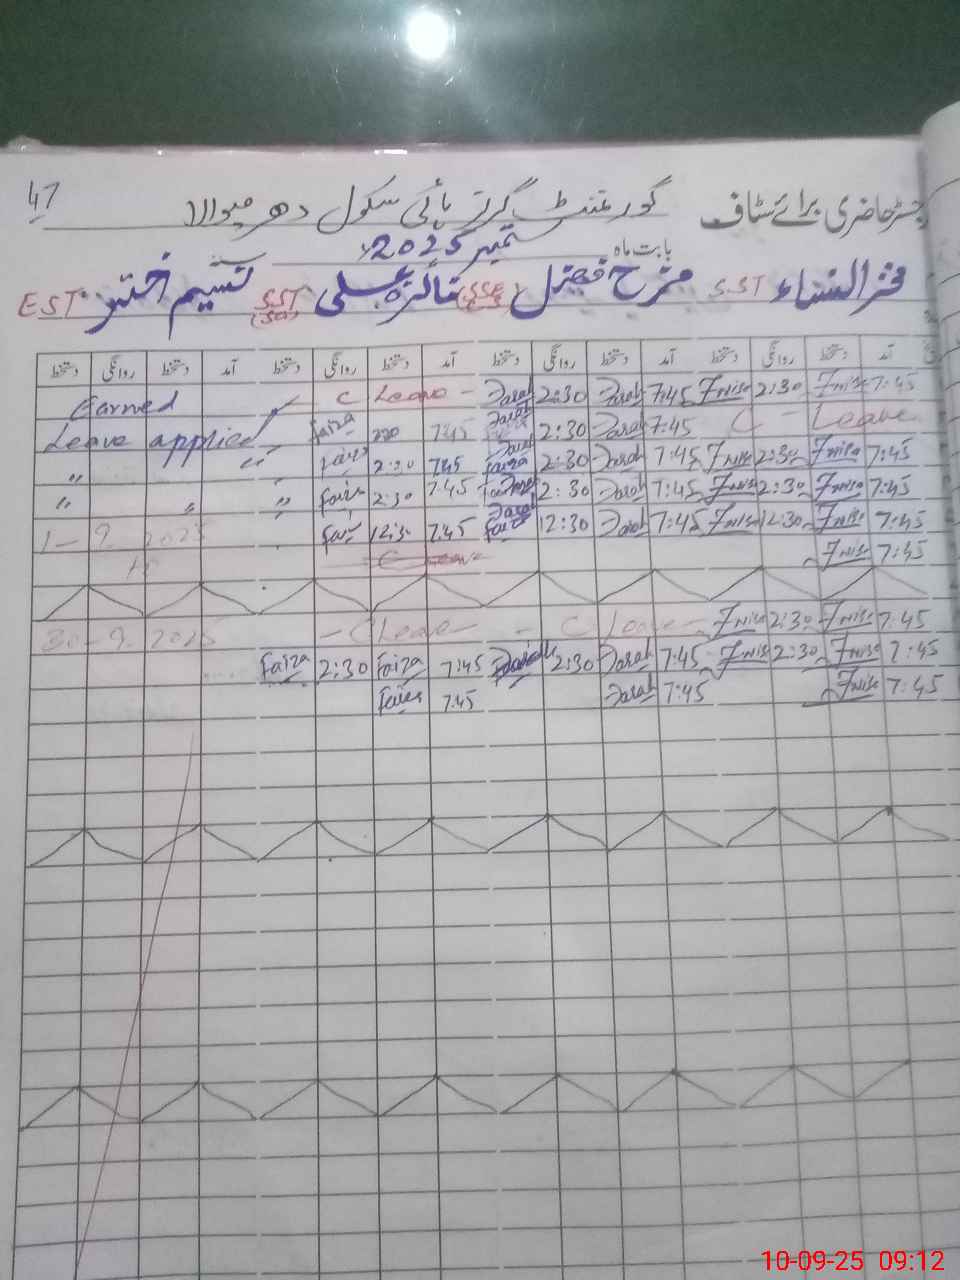 47
رجسٹر حاضری برائے سٹاف گورنمنٹ گرلز ہائی سکول دھرمیوالا
بابت ماہ ستمبر 2025ء
فخر النساء S.ST فرح فضل (SSE) فائزہ علی S.ST نسیم اختر EST
آمد دستخط روانگی دستخط آمد دستخط روانگی دستخط آمد دستخط روانگی دستخط آمد دستخط روانگی دستخط
Earned C Leave - Farah 2:30 Farah 7:45 Fnisa 2:30 Fnisa 7:45
Leave applied Faiza 2:30 7:45 Farah 2:30 Farah 7:45 C - Leave
" " " Faiza 2:30 7:45 Farah 2:30 Farah 7:45 Fnisa 2:30 Fnisa 7:45
" " " Faiza 2:30 7:45 Farah 2:30 Farah 7:45 Fnisa 2:30 Fnisa 7:45
1-9-2025 Faiza 12:30 7:45 Farah 12:30 Farah 7:45 Fnisa 12:30 Fnisa 7:45
To C Leave Fnisa 7:45
30-9-2025 - C Leave - - C Leave - Fnisa 2:30 Fnisa 7:45
Faiza 2:30 Faiza 7:45 Farah 2:30 Farah 7:45 Fnisa 2:30 Fnisa 7:45
Faiza 7:45 Farah 7:45 Fnisa 7:45
10-09-25 09:12